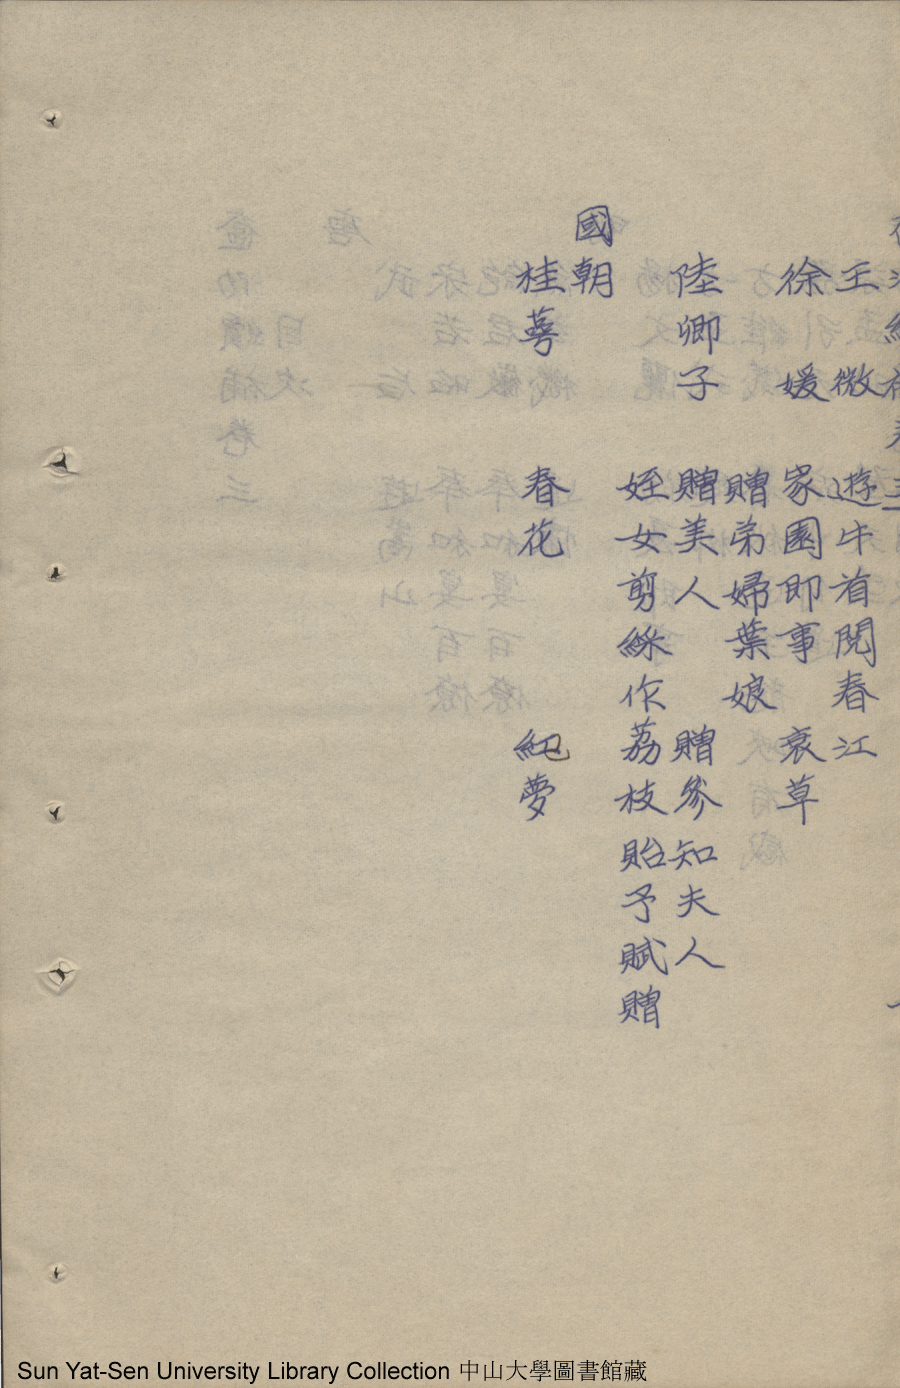 王微　遊牛首閱春江
徐媛　家園即事　哀草
贈弟婦葉娘
陸卿子　贈美人　贈參知夫人
姪女剪綵作荔枝貽予賦贈
國朝
桂萼　春花　紅夢
Sun Yat-Sen University Library Collection 中山大學圖書館藏